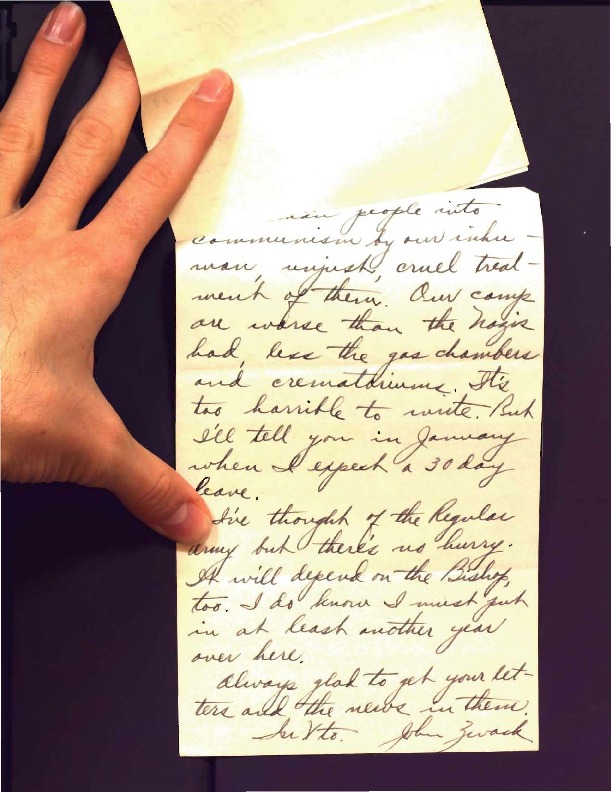 people into
communism by our inhu-
man, unjust, cruel treat-
ment of them. Our camps
are worse than the Nazis
had, less the gas chambers
and crematoriums. It's
too horrible to write. But
I'll tell you in January
when I expect a 30 day
leave.
I've thought of the Regular
army but there's no hurry.
It will depend on the Bishop,
too. I do know I must put
in at least another year
over here.
Always glad to get your let-
ters and the news in them.
In Xto. John Zwack